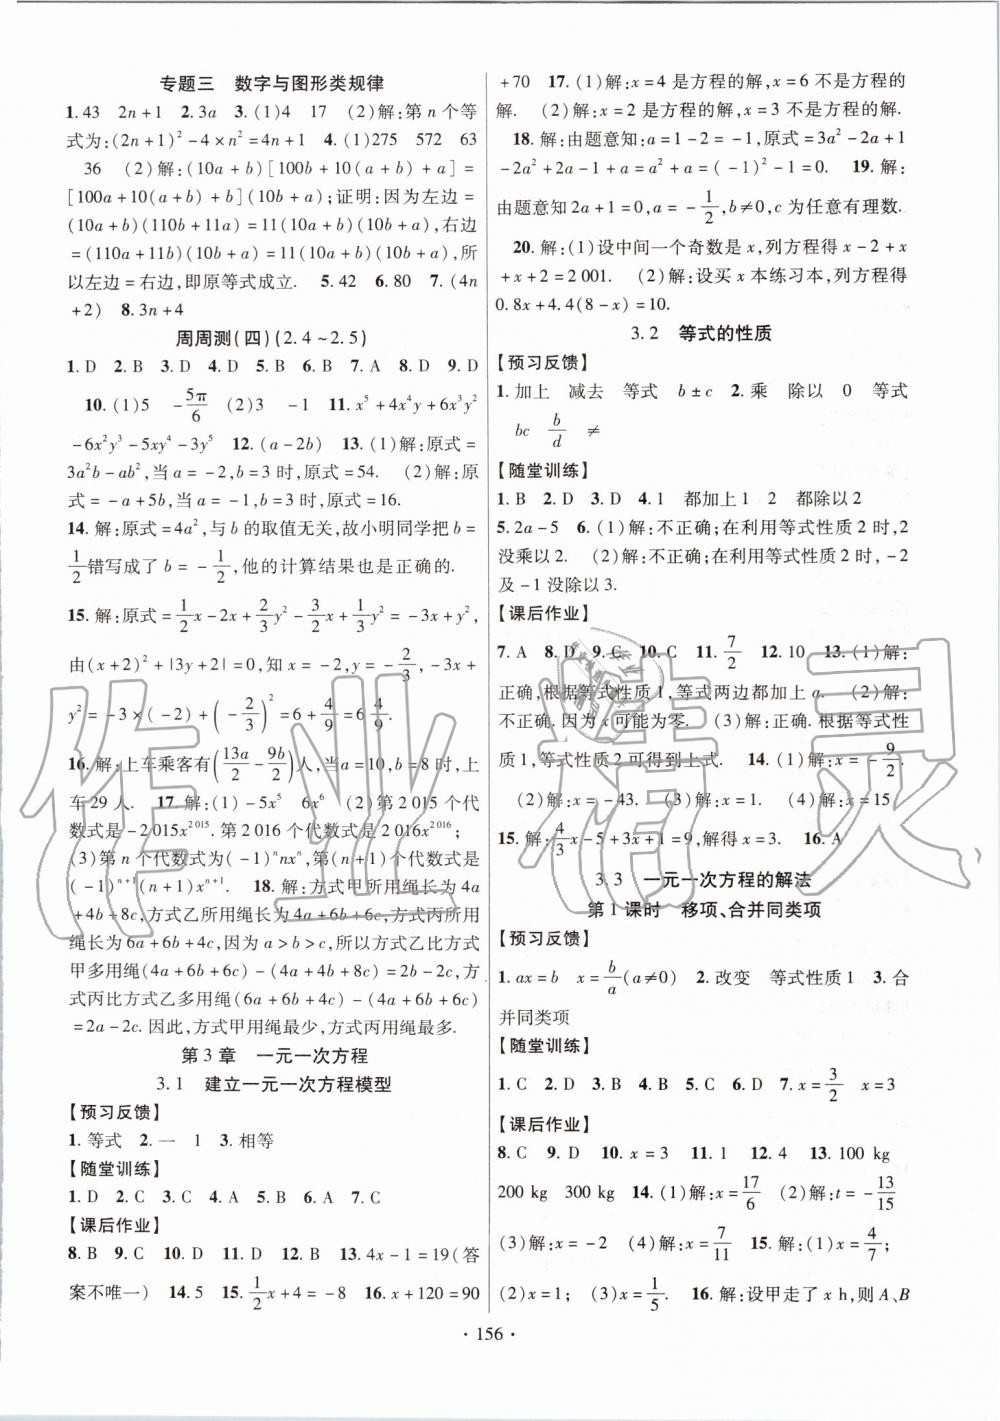 专题三　数字与图形类规律
1. 43　2n+1　2. 3a　3. (1)4　17　(2)解:第 n 个等
式为:(2n+1)²-4×n²=4n+1　4. (1)275　572　63
36　(2)解:(10a+b)[100b+10(a+b)+a]=
[100a+10(a+b)+b](10b+a);证明:因为左边=
(10a+b)(110b+11a)=11(10a+b)(10b+a),右边
=(110a+11b)(10b+a)=11(10a+b)(10b+a),所
以左边=右边,即原等式成立.　5. 42　6. 80　7. (4n
+2)　8. 3n+4
周周测(四)(2.4~2.5)
1. D　2. B　3. D　4. D　5. B　6. B　7. A　8. D　9. D
10. (1)5　-5π/6　(2)3　-1　11. x⁵+4x⁴y+6x³y²
-6x²y³-5xy⁴-3y⁵　12. (a-2b)　13. (1)解:原式=
3a²b-ab²,当 a=-2,b=3 时,原式=54.　(2)解:原
式=-a+5b,当 a=-1,b=3 时,原式=16.
14. 解:原式=4a²,与 b 的取值无关,故小明同学把 b=
1/2错写成了 b=-1/2,他的计算结果也是正确的.
15. 解:原式=1/2x-2x+2/3y²-3/2x+1/3y²=-3x+y²,
由(x+2)²+|3y+2|=0,知 x=-2,y=-2/3,-3x+
y²=-3×(-2)+(-2/3)²=6+4/9=6 4/9.
16. 解:上车乘客有(13a/2-9b/2)人,当a=10,b=8时,上
车29人.　17. 解:(1)-5x⁵　6x⁶　(2)第2 015个代
数式是-2 015x²⁰¹⁵.第2 016个代数式2 016x²⁰¹⁶;
(3)第 n 个代数式为(-1)ⁿnxⁿ,第(n+1)个代数式是
(-1)ⁿ⁺¹(n+1)xⁿ⁺¹.　18. 解:方式甲所用绳长为4a
+4b+8c,方式乙所用绳长为4a+6b+6c,方式丙所用
绳长为6a+6b+4c,因为 a>b>c,所以方式乙比方式
甲多用绳(4a+6b+6c)-(4a+4b+8c)=2b-2c,方
式丙比方式乙多用绳(6a+6b+4c)-(4a+6b+6c)
=2a-2c.因此,方式甲用绳最少,方式丙用绳最多.
第3章　一元一次方程
3.1　建立一元一次方程模型
【预习反馈】
1. 等式　2. 一　1　3. 相等
【随堂训练】
1. D　2. C　3. C　4. A　5. B　6. A　7. C
【课后作业】
8. B　9. C　10. D　11. D　12. D　13. 4x-1=19(答
案不唯一)　14. 5　15. 1/2x+4=-8　16. x+120=90
+70　17. (1)解:x=4 是方程的解,x=6 不是方程的
解.　(2)解:x=2 是方程的解,x=3 不是方程的解.
18. 解:由题意知:a=1-2=-1,原式=3a²-2a+1
-2a²+2a-1+a=a²+a=(-1)²-1=0.　19. 解:
由题意知2a+1=0,a=-1/2,b≠0,c 为任意有理数.
20. 解:(1)设中间一个奇数是 x,列方程得 x-2+x
+x+2=2 001.　(2)解:设买 x 本练习本,列方程得
0.8x+4.4(8-x)=10.
3.2　等式的性质
【预习反馈】
1. 加上　减去　等式　b±c　2. 乘　除以　0　等式
bc　b/d　≠
【随堂训练】
1. B　2. D　3. D　4. 1　都加上1　2　都除以2
5. 2a-5　6. (1)解:不正确;在利用等式性质2时,2
没乘以2.　(2)解:不正确;在利用等式性质2时,-2
及-1没除以3.
【课后作业】
7. A　8. D　9. C　10. C　11. 7/2　12. 10　13. (1)解:
正确,根据等式性质1,等式两边都加上a.　(2)解:
不正确.因为x可能为零.　(3)解:正确.根据等式性
质1,等式性质2可得到上式.　14. (1)解:x=-9/2.
(2)解:x=-43.　(3)解:x=1.　(4)解:x=15
15. 解:4/3x-5+3x+1=9,解得x=3.　16. A
3.3　一元一次方程的解法
第1课时　移项、合并同类项
【预习反馈】
1. ax=b　x=b/a(a≠0)　2. 改变　等式性质1　3. 合
并同类项
【随堂训练】
1. C　2. D　3. A　4. B　5. C　6. D　7. x=3/2　x=3
【课后作业】
8. C　9. D　10. x=3　11. 1　12. 4　13. 100 kg
200 kg　300 kg　14. (1)解:x=17/6　(2)解:t=-13/15
(3)解:x=-2　(4)解:x=7/11　15. 解:(1)x=4/7;
(2)x=1;　(3)x=1/5.　16. 解:设甲走了 x h,则A、B
· 156 ·
作业精灵